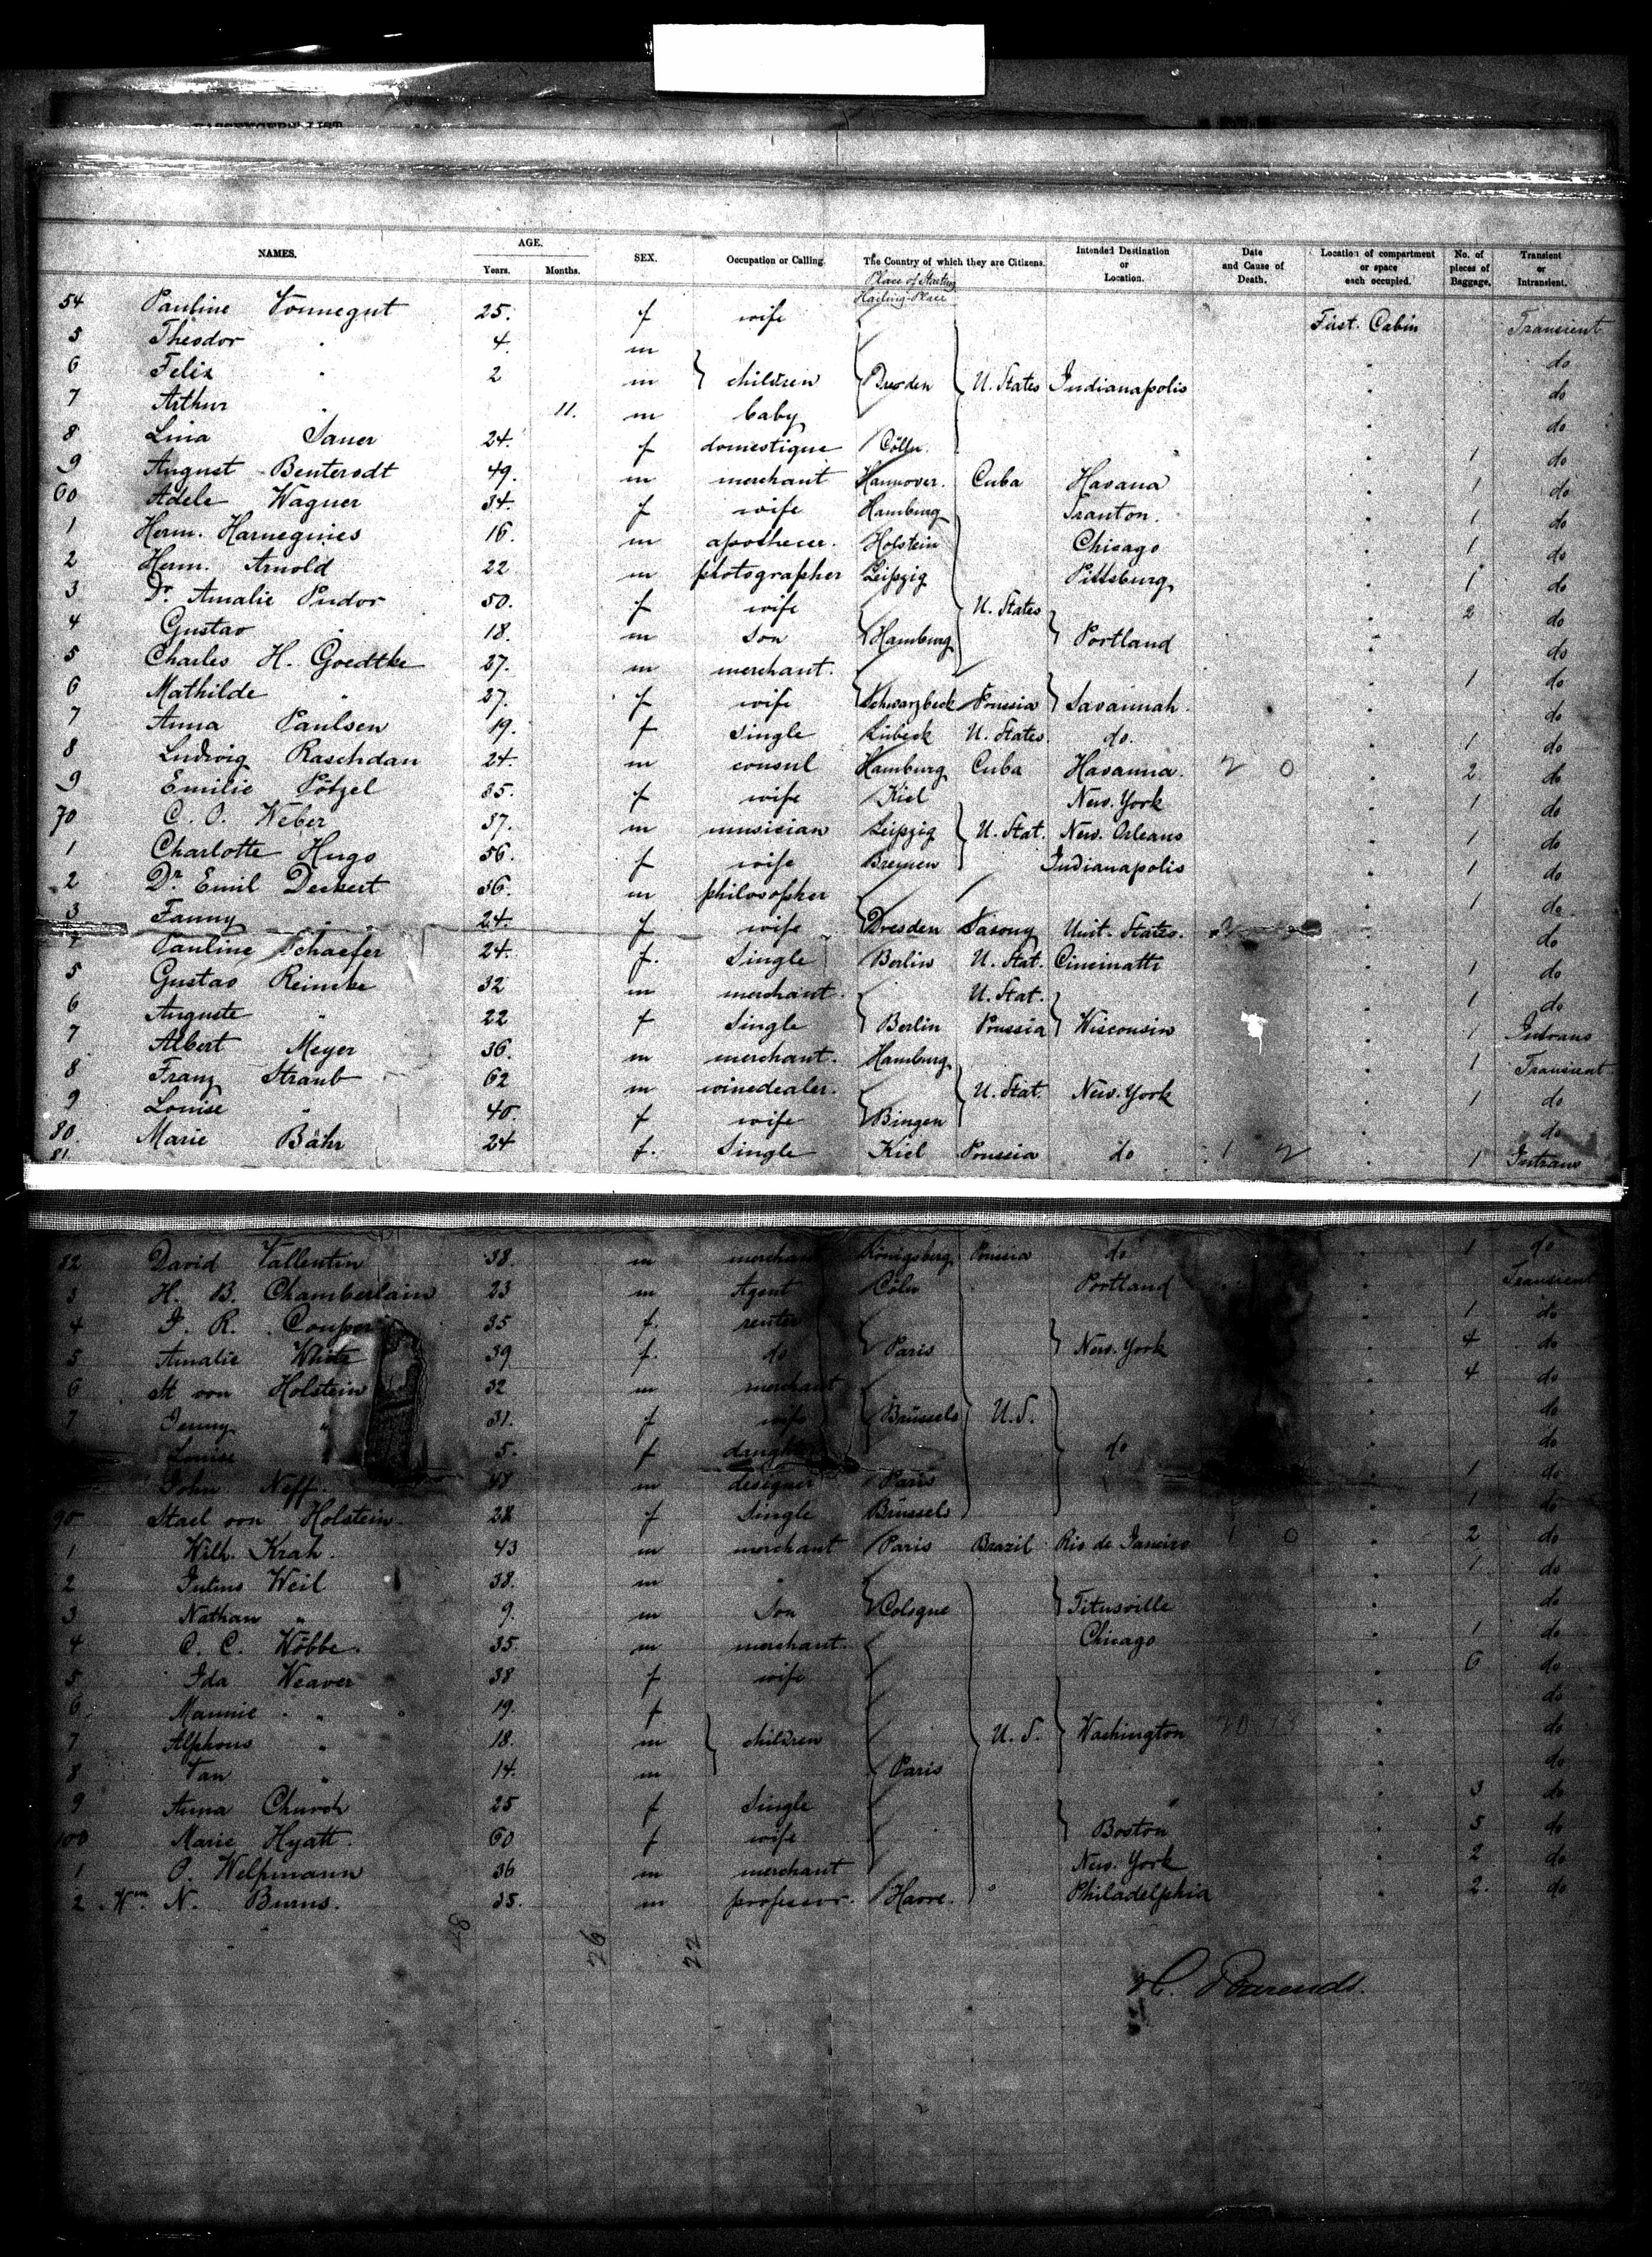 PASSENGER'S LIST
NAMES. AGE. SEX. Occupation or Calling. The Country of which they are Citizens. Intended Destination or Location. Date and Cause of Death. Location of compartment or space each occupied. No. of pieces of Baggage. Transient or Intransient.
Years. Months. Place of Starting
Hailing Place
54 Pauline Vonnegut 25. f wife First. Cabin Transient
5 Theodor " 4. m do
6 Felix " 2 m } children Dresden U. States Indianapolis do
7 Arthur " 11. m baby do
8 Lina Sauer 24. f domestique Cölln. 1 do
9 August Benterodt 49. m merchant Hannover. Cuba Havana 1 do
60 Adele Wagner 34. f wife Hamburg Sranton. 1 do
1 Herm. 16. m apothecer. Holstein Chicago 1 do
2 Herm. Arnold 22 m photographer Leipzig Pittsburg 1 do
3 Dr. Amalie Pudor 50. f wife U. States 2 do
4 Gustav " 18. m Son Hamburg } Portland do
5 Charles H. Goedtke 27. m merchant. 1 do
6 Mathilde " 27. f wife Schwarzbeck Prussia } Savannah. do
7 Anna Paulsen 19. f Single Lübeck U. States. do. 1 do
8 Ludwig Raschdau 24. m consul Hamburg Cuba Havanna. 2 0 2 do
9 Emilie Pötzel 35. f wife Kiel New. York 1 do
70 C. O. Weber 37. m musician Leipzig } U. Stat. New. Orleans 1 do
1 Charlotte Hugo 56. f wife Bremen Indianapolis 1 do
2 Dr. Emil Deckert 36. m philosopher 1 do
3 Fanny " 24. f wife Dresden Saxony Unit. States. do
4 Pauline Schaefer 24. f. Single Berlin U. Stat. Cincinatti 1 do
5 Gustav Reincke 32 m merchant. U. Stat. 1 do
6 Auguste " 22 f Single Berlin Prussia } Wisconsin 1 Intrans
7 Albert Meyer 36. m merchant. Hamburg 1 Transient
8 Franz Straub 62 m winedealer. } U. Stat. New. York 1 do
9 Louise " 40. f wife Bingen do
80. Marie Bähr 24 f. Single Kiel Prussia do 1 2 1 Intrans
81
82 David Vallentin 38. m merchant Königsberg Prussia do 1 do
3 H. B. Chamberlain 23 m Agent Cöln Portland Transient
4 J. R. Couper 35 f. renter 1 do
5 Amalie White 39 f. do Paris } New. York 4 do
6 St von Holstein 32 m merchant 4 do
7 Jenny " 31. f wife Brüssels U. S. do
Louise " 5. f daughter do do
John Neff. 48 m designer Paris 1 do
90 Stael von Holstein. 28 f Single Brüssels 1 do
1 Wilh. Krah. 43 m merchant Paris Brazil Rio de Janeiro 1 0 2 do
2 Julius Weil 38. m " 1 do
3 Nathan " 9. m Son Cologne } Titusville do
4 C. C. Wöbbe. 35. m merchant. Chicago 1 do
5 Ida Weaver 38 f wife 6 do
6 Mannie " 19. f do
7 Alphons " 18. m } children U. S. } Washington do
8 Van " 14. m Paris do
9 Anna Church 25 f Single 3 do
100 Marie Hyatt. 60 f wife } Boston 5 do
1 O. Welpmann 36 m merchant New. York 2 do
2 Wm. N. Burns. 35. m professor. Havre. " Philadelphia 2. do
26 22
H. Barends.